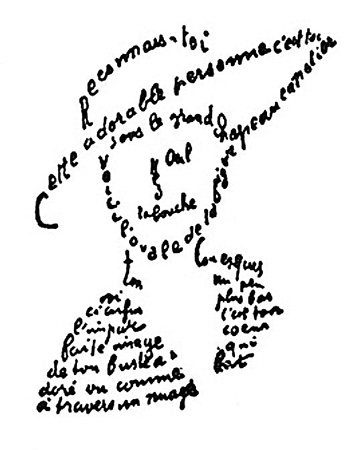 Reconnais-toi
Cette adorable personne c'est toi
Sous le grand chapeau canotier
Oeil
Nez
la bouche
Voici l'ovale de ta figure
ton
Cou exquis
Voi
ci enfin
l'impar
faite image
de ton buste a
doré vu comme
à travers un nuage
un peu
plus bas
c'est ton
coeur
qui
bat